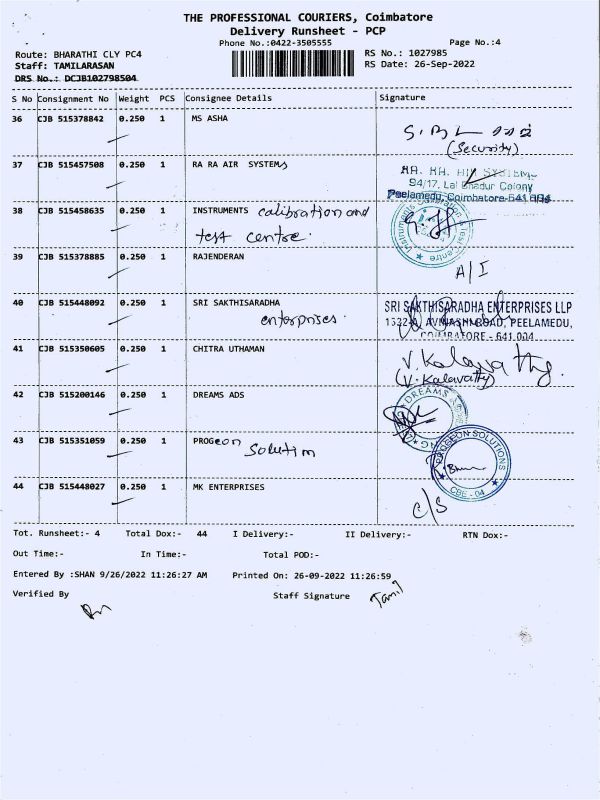 THE PROFESSIONAL COURIERS, Coimbatore
Delivery Runsheet - PCP
Phone No.:0422-3505555
Page No.:4
Route: BHARATHI CLY PC4
RS No.: 1027985
Staff: TAMILARASAN
RS Date: 26-Sep-2022
DRS No.: DCJB102798504
S No Consignment No Weight PCS Consignee Details Signature
36 CJB 515378842 0.250 1 MS ASHA
(Security)
37 CJB 515457508 0.250 1 RA RA AIR SYSTEMS
94/17, Lal Bhadur Colony
Peelamedu, Coimbatore-641 004
38 CJB 515458635 0.250 1 INSTRUMENTS calibration and
test centre.
39 CJB 515378885 0.250 1 RAJENDERAN
A/I
40 CJB 515448092 0.250 1 SRI SAKTHISARADHA SRI SAKTHISARADHA ENTERPRISES LLP
enterprises. AVINASHI ROAD, PEELAMEDU,
COIMBATORE - 641 004
41 CJB 515350605 0.250 1 CHITRA UTHAMAN V. Kalavathy.
(V. Kalavatty)
42 CJB 515200146 0.250 1 DREAMS ADS
DREAMS
43 CJB 515351059 0.250 1 PROGeon
Solution
PROGEON SOLUTIONS
CBE - 04
44 CJB 515448027 0.250 1 MK ENTERPRISES
C/S
Tot. Runsheet:- 4 Total Dox:- 44 I Delivery:- II Delivery:- RTN Dox:-
Out Time:- In Time:- Total POD:-
Entered By :SHAN 9/26/2022 11:26:27 AM Printed On: 26-09-2022 11:26:59
Verified By Staff Signature Tamil